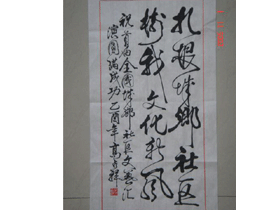 扎根城乡社区
树我文化新风
祝首届全国城乡社区文艺汇
演圆满成功乙酉年高占祥